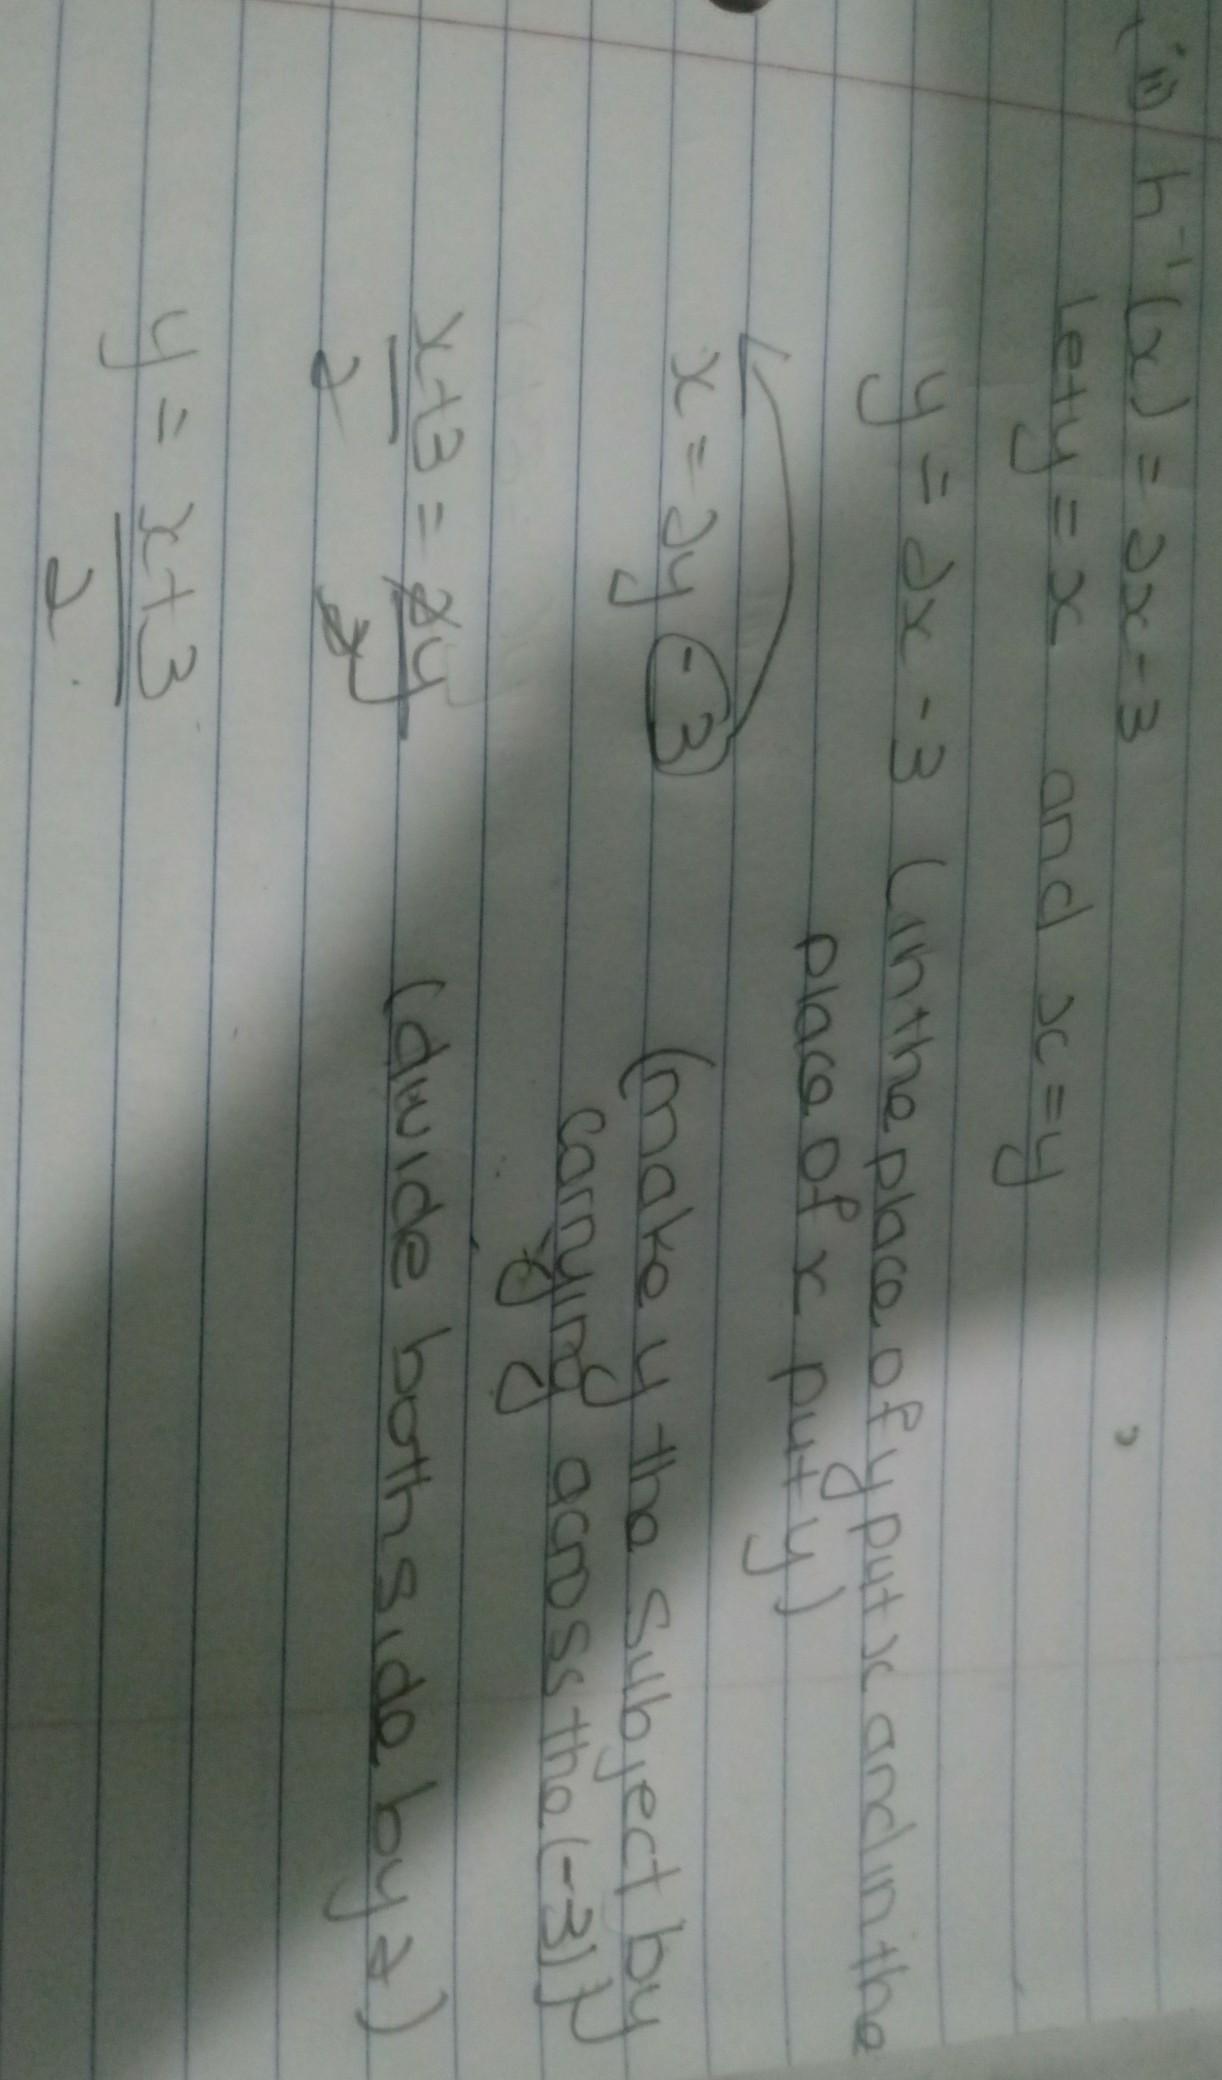 (ii) h⁻¹(x) = 2x-3
let y = x and x = y
y = 2x - 3 (in the place of y put x and in the
place of x put y)
x = 2y - 3 (make y the subject by
carrying across the (-3))
x+3 = 2y (divide both side by 2)
2 2
y = x+3
2